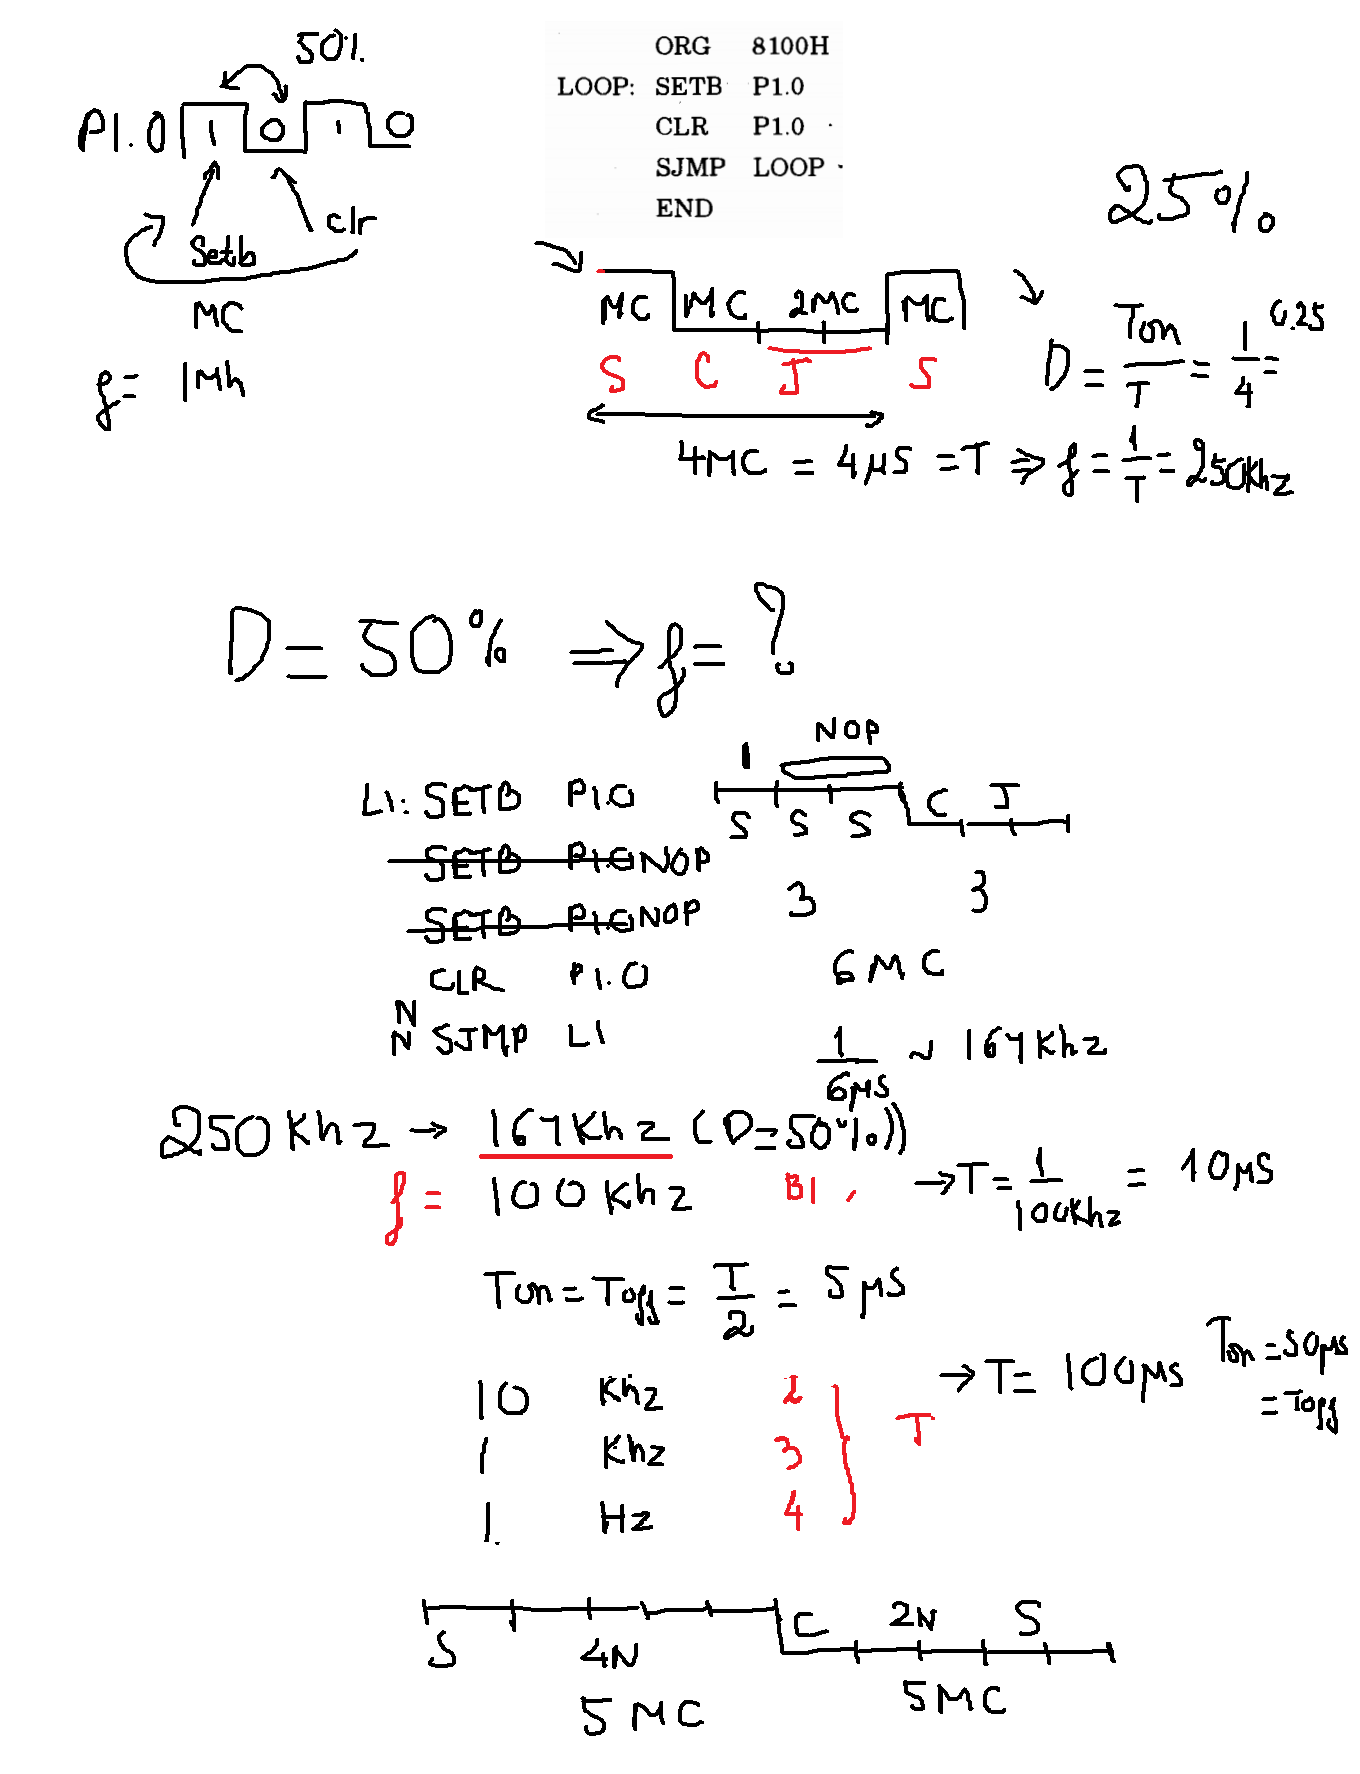 50%
P1.0 1 0 1 0
Setb
clr
MC
f = 1Mh
ORG 8100H
LOOP: SETB P1.0
CLR P1.0
SJMP LOOP
END
25%
MC MC 2MC MC
S C J S
D = Ton/T = 1/4 = 0.25
4MC = 4μS = T ⇒ f = 1/T = 250Khz
D = 50% ⇒ f = ?
NOP
1
L1: SETB P1.0
S S S C J
SETB P1.0 NOP
SETB P1.0 NOP
3 3
CLR P1.0
6MC
N
N SJMP L1
1/6μS ~ 167Khz
250Khz → 167Khz (D=50%))
f = 100Khz B1
→ T = 1/100Khz = 10μS
Ton = Toff = T/2 = 5μS
10 Khz 2
→ T = 100μS Ton = 50μs
= Toff
1 Khz 3
T
1. Hz 4
S 4N C 2N S
5MC 5MC